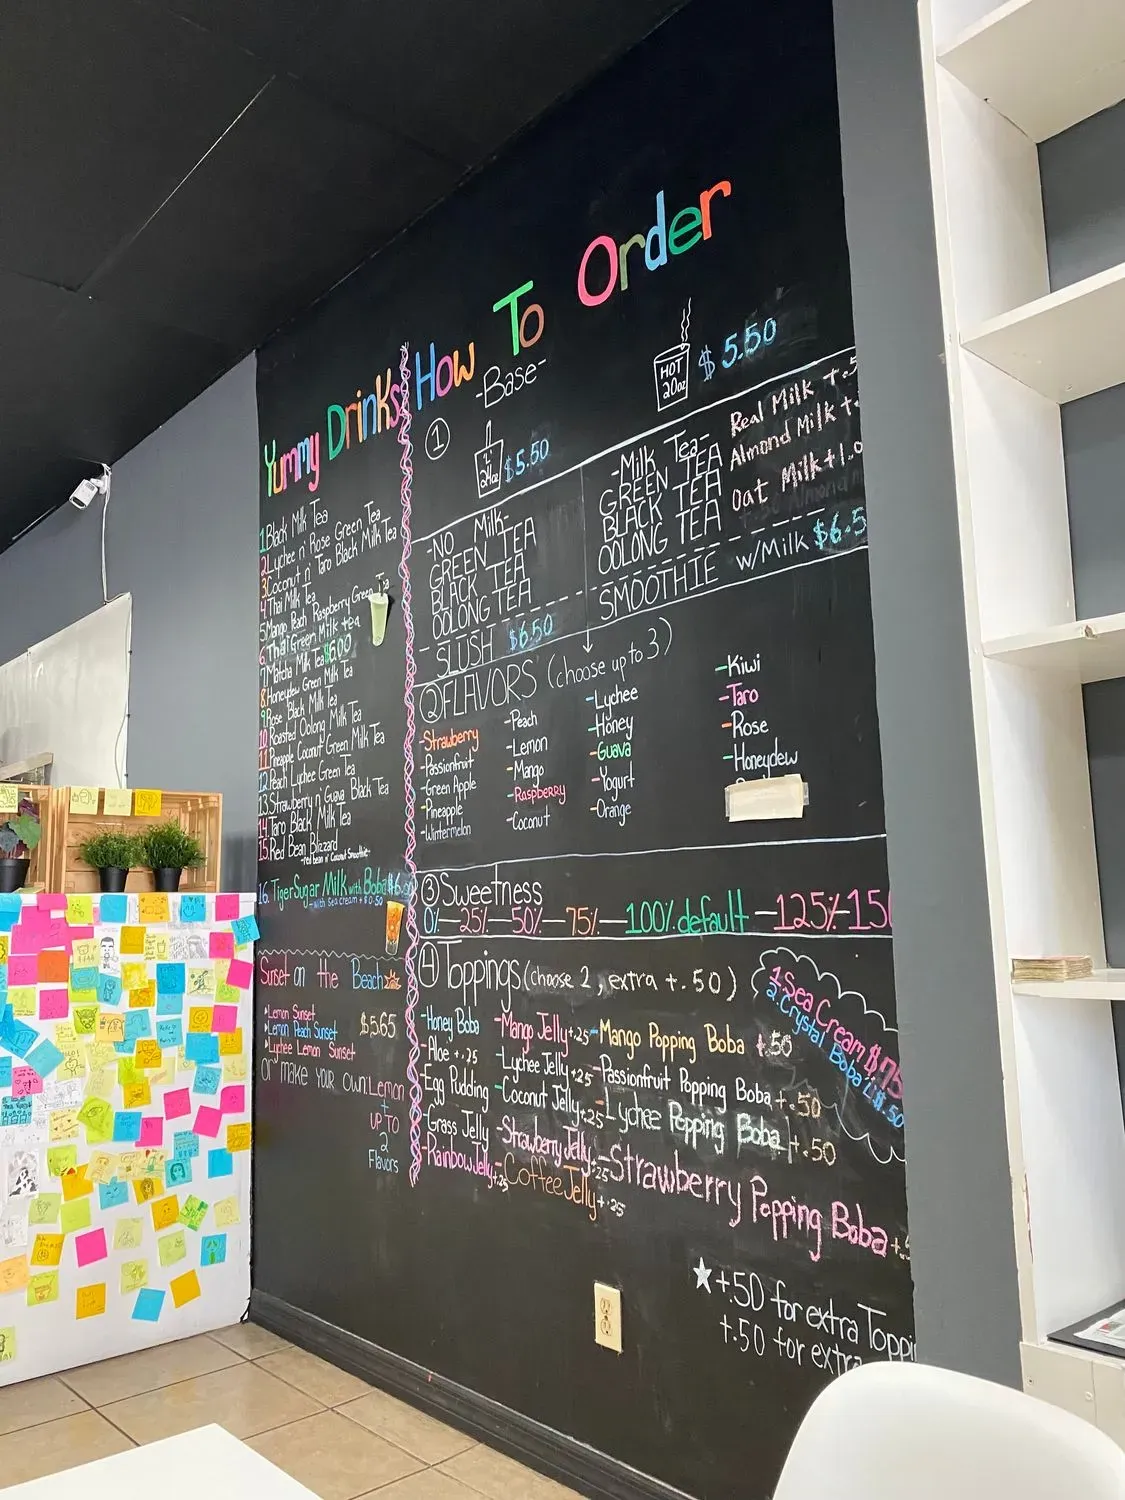 Yummy Drinks
1 Black Milk Tea
2 Lychee n' Rose Green Tea
3 Coconut n' Taro Black Milk Tea
4 Thai Milk Tea
5 Mango Peach Raspberry Green Tea
6. Thai Green Milk tea
7 Matcha Milk Tea $6.00
8. Honeydew Green Milk Tea
9 Rose Black Milk Tea
10 Roasted Oolong Milk Tea
11 Pineapple Coconut Green Milk Tea
12 Peach Lychee Green Tea
13 Strawberry n' Guava Black Tea
14 Taro Black Milk Tea
15. Red Bean Blizzard
-red bean n' Coconut Smoothie-
16. Tiger Sugar Milk with Boba
-with Sea cream +$0.50
Sunset on the Beach
Lemon Sunset
Lemon Peach Sunset
Lychee Lemon Sunset
$5.65
Or make your own: Lemon
+
UP TO
2
Flavors
How To Order
1
-Base-
24oz $5.50
HOT
20oz
$5.50
-NO Milk-
GREEN TEA
BLACK TEA
OOLONG TEA
SLUSH $6.50
-Milk Tea-
GREEN TEA
BLACK TEA
OOLONG TEA
Real Milk +.5
Almond Milk +.
Oat Milk +1.0
SMOOTHIE w/Milk $6.5
2 FLAVORS (choose up to 3)
-Strawberry
-Passionfruit
-Green Apple
-Pineapple
-Wintermelon
-Peach
-Lemon
-Mango
-Raspberry
-Coconut
-Lychee
-Honey
-Guava
-Yogurt
-Orange
-Kiwi
-Taro
-Rose
-Honeydew
3 Sweetness
0%—25%—50%—75%—100% default—125%—150
4 Toppings (choose 2, extra +.50)
-Honey Boba
-Aloe +.25
-Egg Pudding
-Grass Jelly
-Rainbow Jelly +.25
-Mango Jelly +.25
-Lychee Jelly +.25
-Coconut Jelly +.25
-Strawberry Jelly +.25
-Coffee Jelly +.25
-Mango Popping Boba +.50
-Passionfruit Popping Boba +.50
-Lychee Popping Boba +.50
-Strawberry Popping Boba +.5
1 Sea Cream $.75
2 Crystal Boba $.50
★ +.50 for extra Toppi
+.50 for extra